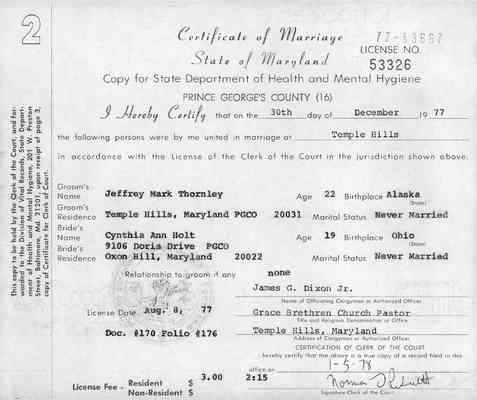 2
Certificate of Marriage
State of Maryland
77-
LICENSE NO.
53326
Copy for State Department of Health and Mental Hygiene
PRINCE GEORGE'S COUNTY (16)
I Hereby Certify that on the 30th day of December 19 77
the following persons were by me united in marriage at Temple Hills
in accordance with the License of the Clerk of the Court in the jurisdiction shown above.
Groom's
Name Jeffrey Mark Thornley Age 22 Birthplace Alaska
(State)
Groom's
Residence Temple Hills, Maryland PGCO 20031 Marital Status Never Married
Bride's
Name Cynthia Ann Holt Age 19 Birthplace Ohio
(State)
Bride's 9106 Doris Drive PGCO
Residence Oxon Hill, Maryland 20022 Marital Status Never Married
Relationship to groom if any none
James G. Dixon Jr.
Name of Officiating Clergyman or Authorized Officer
License Date Aug. 8, 77
Grace Brethren Church Pastor
Title and Religious Denomination or Office
Doc. #170 Folio #176
Temple Hills, Maryland
Address of Clergyman or Authorized Officer
CERTIFICATION OF CLERK OF THE COURT
I hereby certify that the above is a true copy of a record filed in this
office on 1-5-78
License Fee - Resident $ 3.00 2:15
Non-Resident $
Signature-Clerk of the Court
This copy to be held by the Clerk of the Court, and for-
warded to the Division of Vital Records, State Depart-
ment of Health and Mental Hygiene, 201 W. Preston
Street, Baltimore, Md. 21201, upon receipt of page 3,
copy of Certificate for Clerk of Court.